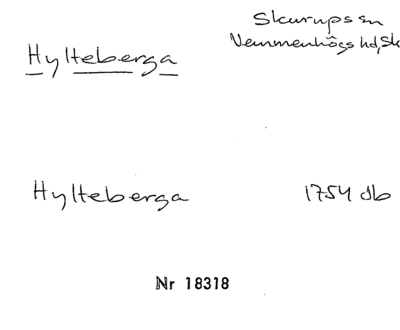 Hylteberga
Skurups sn
Vemmenhögs hd, Sk
Hylteberga 1754 db
Nr 18318